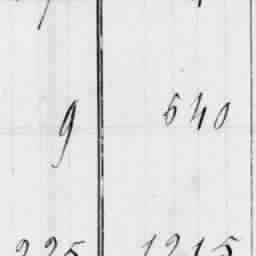 9 640
225 1215